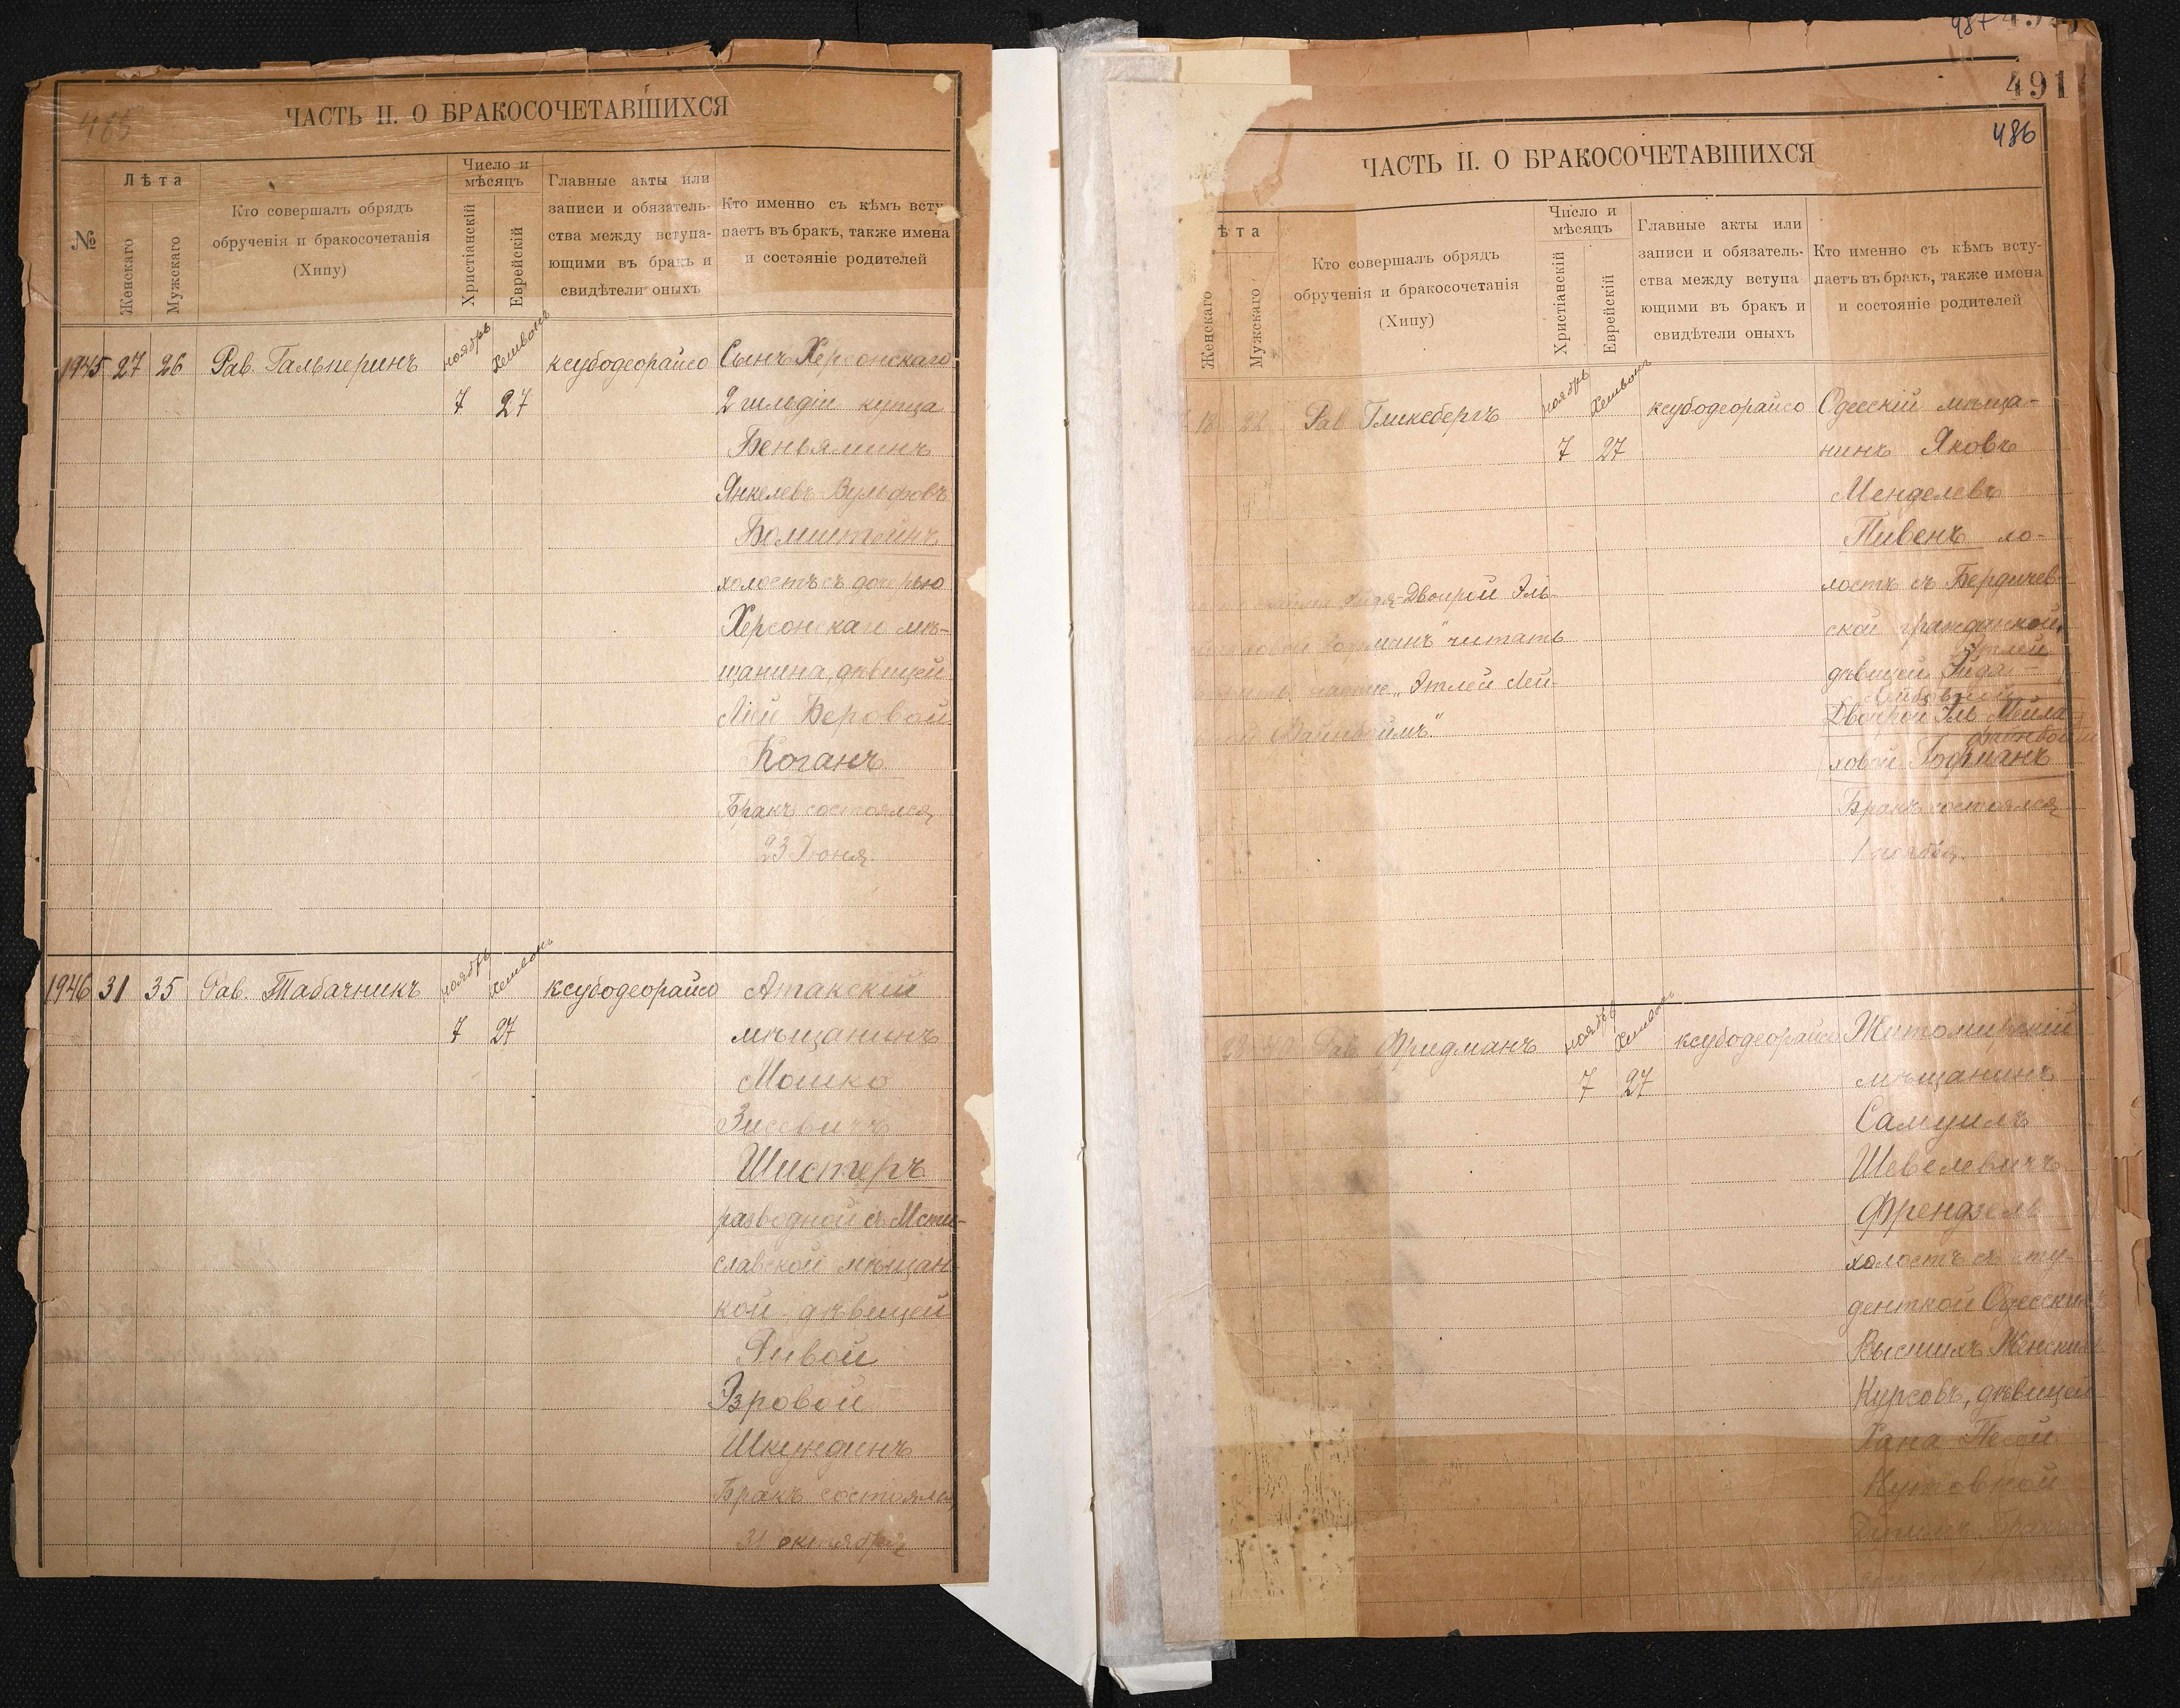 485
ЧАСТЬ II. О БРАКОСОЧЕТАВШИХСЯ
№
Лѣта
Женскаго
Мужскаго
Кто совершалъ обрядъ
обрученія и бракосочетанія
(Хипу)
Число и
мѣсяцъ
Христіанскій
Еврейскій
Главные акты или
записи и обязатель-
ства между вступа-
ющими въ бракъ и
свидѣтели оныхъ
Кто именно съ кѣмъ всту-
паетъ въ бракъ, также имена
и состояніе родителей
1945 27 26 Рав. Гальперинъ ноябрь Хешванъ ксубодеорайсо Сынъ Херсонскаго
7 27 2 гильдіи купца
Беньяминъ
Янкелевъ-Вульфовъ
Бомштейнъ
холостъ съ дочерью
Херсонскаго мѣ-
щанина, дѣвицей
Ліей Беровой
Коганъ
Бракъ состоялся
23 Іюня.
1946 31 35 Рав. Табачникъ ноябрь Хешванъ ксубодеорайсо Атакскій
7 27 мѣщанинъ
Мошко
Зисевичъ
Шистеръ
разводной съ Мсти-
славской мѣщан-
кой - дѣвицей
Ривой
Эзровой
Шкундинъ
Бракъ состоялся
31 октября
491
486
ЧАСТЬ II. О БРАКОСОЧЕТАВШИХСЯ
ѣта
Женскаго
Мужскаго
Кто совершалъ обрядъ
обрученія и бракосочетанія
(Хипу)
Число и
мѣсяцъ
Христіанскій
Еврейскій
Главные акты или
записи и обязатель-
ства между вступа-
ющими въ бракъ и
свидѣтели оныхъ
Кто именно съ кѣмъ всту-
паетъ въ бракъ, также имена
и состояніе родителей
18 22 Рав Гликсбергъ ноябрь Хешванъ ксубодеорайсо Одесскій мѣща-
7 27 нинъ Яковъ
Менделевъ
Пивенъ хо-
лостъ съ Бердичев-
ской гражданкой,
Этлей
дѣвицей Гидя-
Лейзовной
Двойрой Эль Мейла-
Файнбоймъ
ховой Гофманъ
Бракъ состоялся
1 ноября.
Гидя-Двойрой Эль-
Гофманъ" читать
"Этлей Лей-
Файнбоймъ."
28 Рав Фридманъ ноябрь Хешванъ ксубодеорайсо Житомирскій
7 27 мѣщанинъ
Самуилъ
Шевелевичъ
Френдзель
холостъ съ сту-
денткой Одесскихъ
Высшихъ Женскихъ
Курсовъ, дѣвицей
Хана Песей